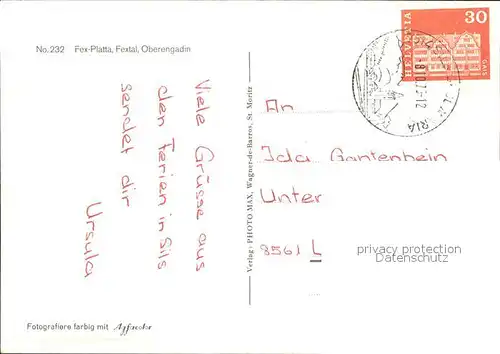 No. 232 Fex-Platta, Fextal, Oberengadin
Viele Grüsse aus
den Ferien in Sils
sendet dir
Ursula
Fotografiere farbig mit Agfacolor
Verlag: PHOTO MAX, Wagner-de-Barros, St. Moritz
HELVETIA
30
GAIS
An
Ida Gantenbein
Unter
8561 L
privacy protection
Datenschutz